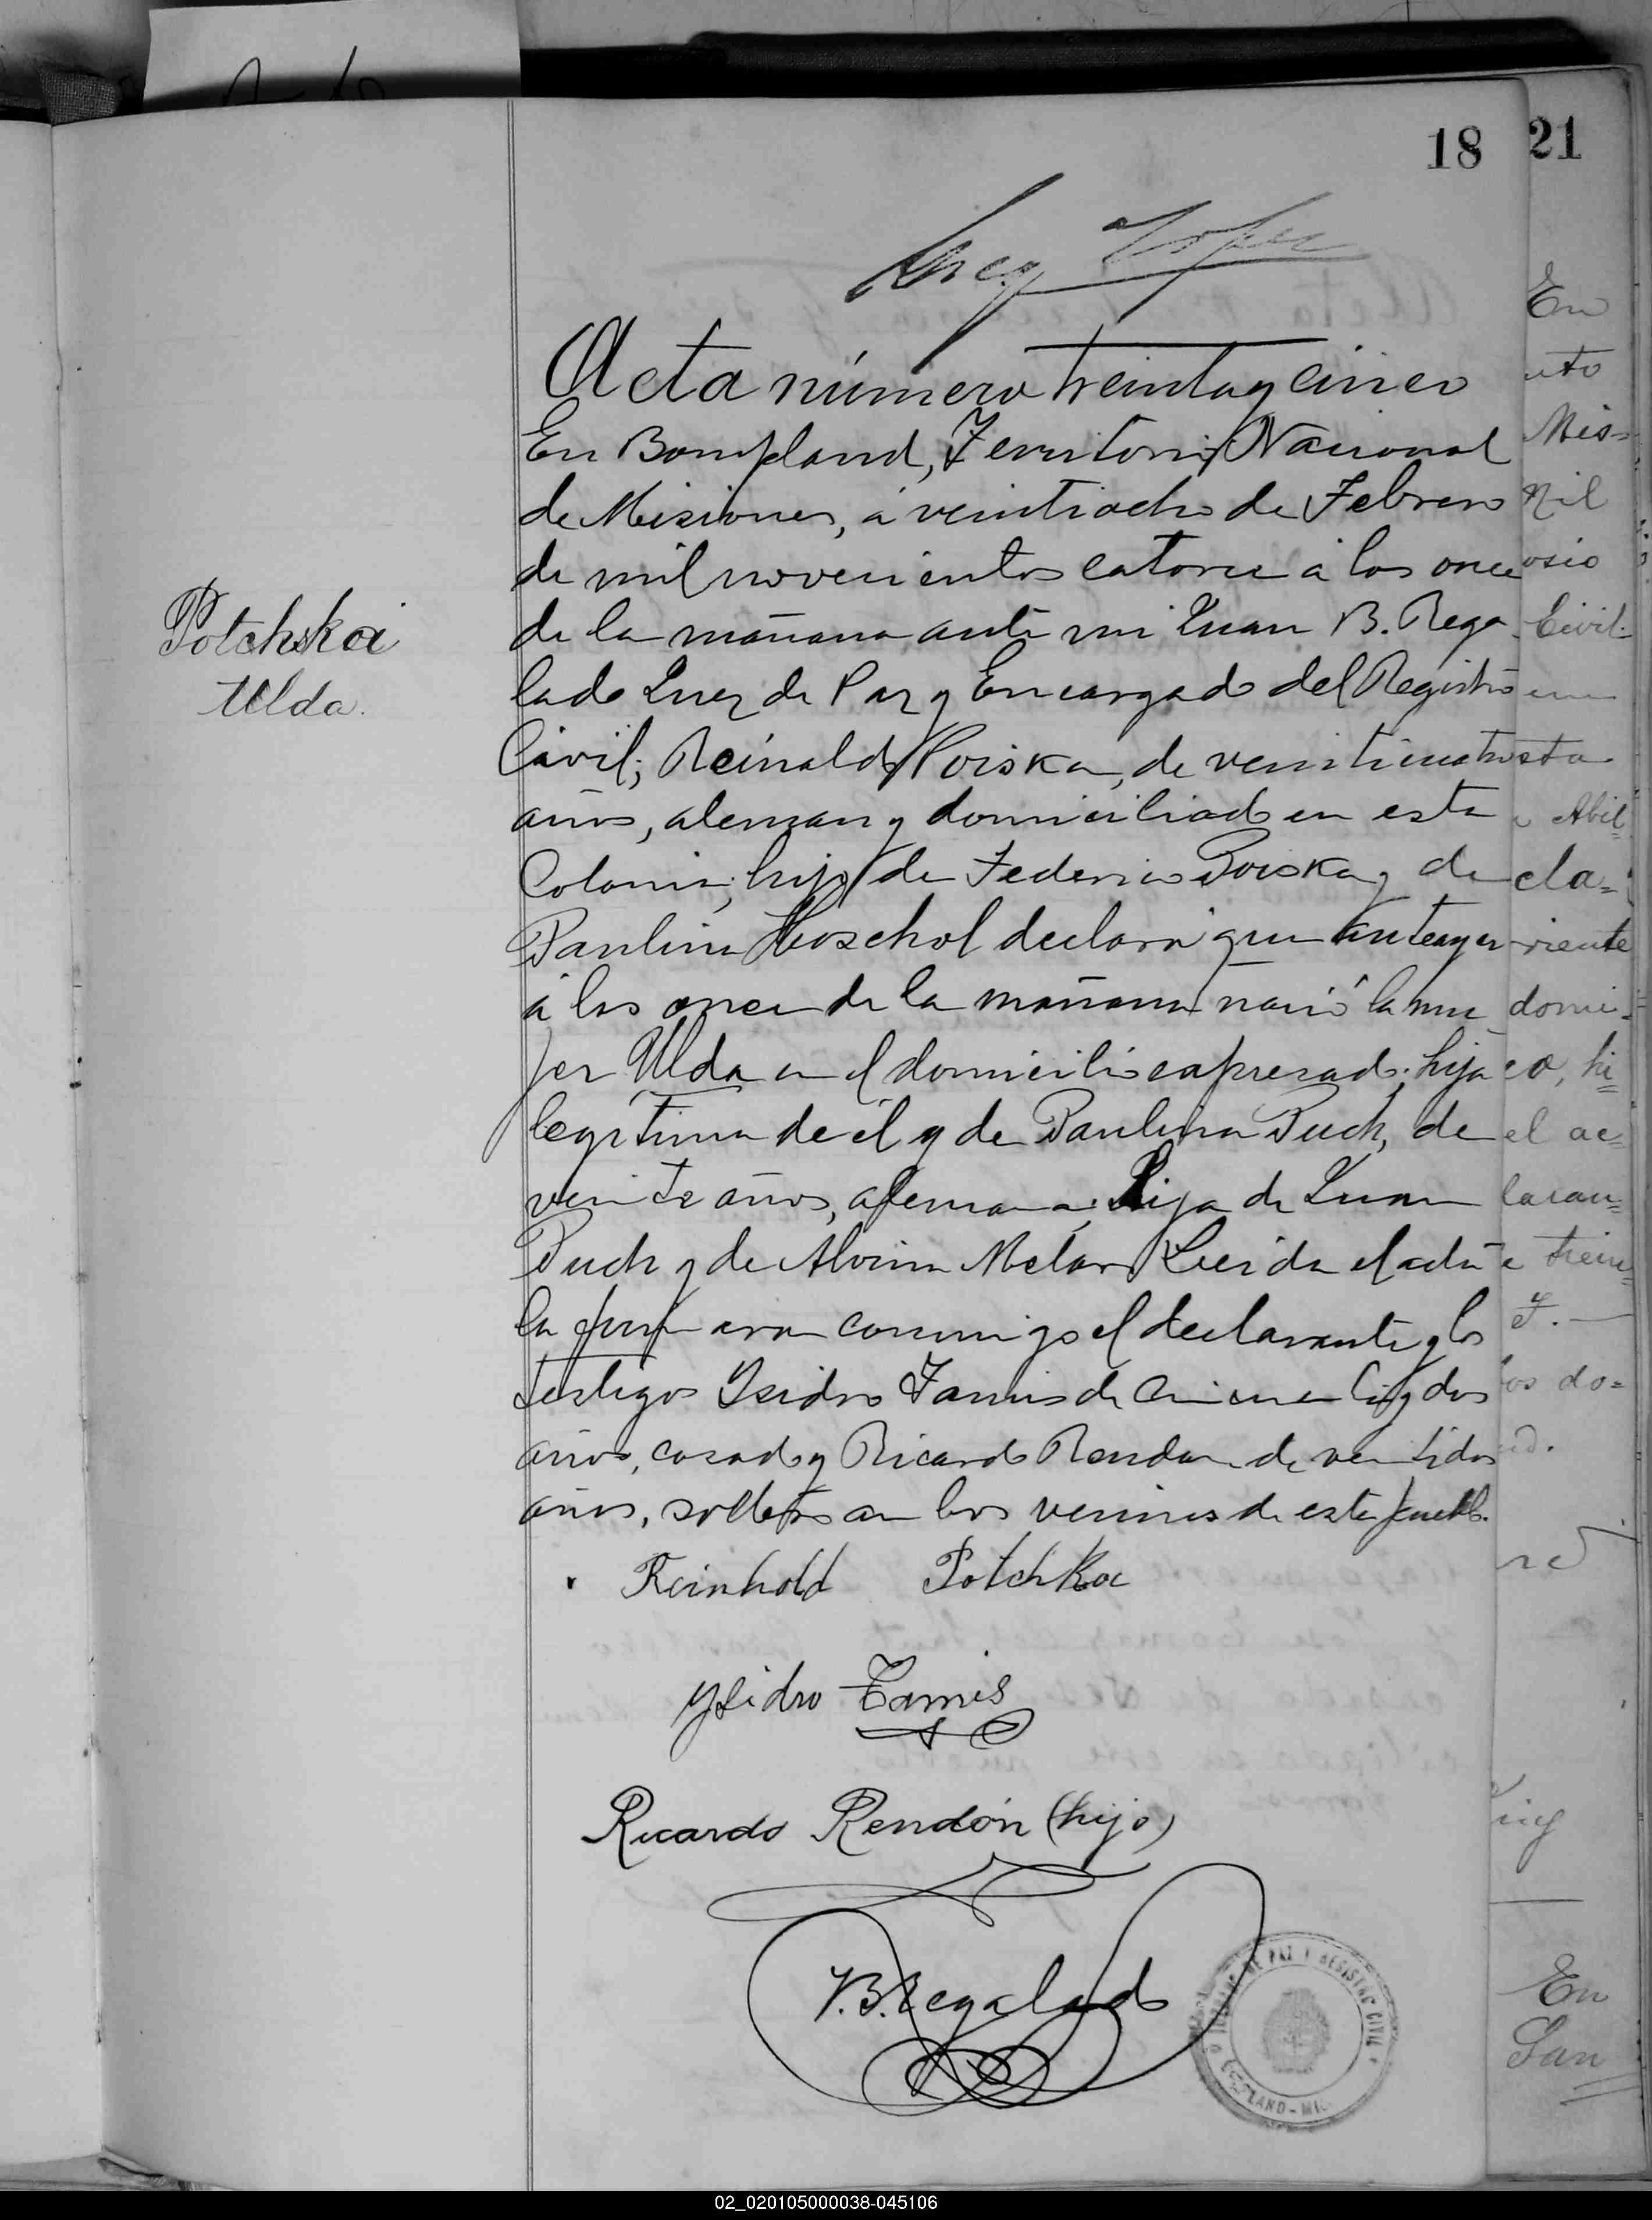 18
21
Acta número treinta y cinco
En Bompland, Territorio Nacional
de Misiones, á veintiocho de Febrero
de mil novecientos catorce á las once
de la mañana ante mi Juan B. Rega
lado Juez de Paz y Encargado del Registro
Civil; Reinaldo Poiska, de veinticuatro
años, aleman y domiciliado en esta
Colonia; hijo de Federico Poiska y de
Paulina declaró que anteayer
á las once de la mañana nació la mu
jer Ulda en el domicilio expresado; hija
legítima de él y de Paulina Puch, de
veinte años, alemana; hija de Juan
Puch y de Alvina Leida el acta
la firmaron conmigo el declarante y los
testigos Isidro Tamis de cincuenta y dos
años, casado y Ricardo Rendon de ventidos
años, soltero am bos vecinos de este pueblo.
Potchska
Ulda.
Reinhold Potchka
Ysidro Tamis
Ricardo Rendón (hijo)
J.B. Regalado
DE PAZ Y REGISTRO CIVIL
En
Mis=
Civil.
cla=
riente
domi=
el ac=
F.
os do=
En
San
02_020105000038-045106